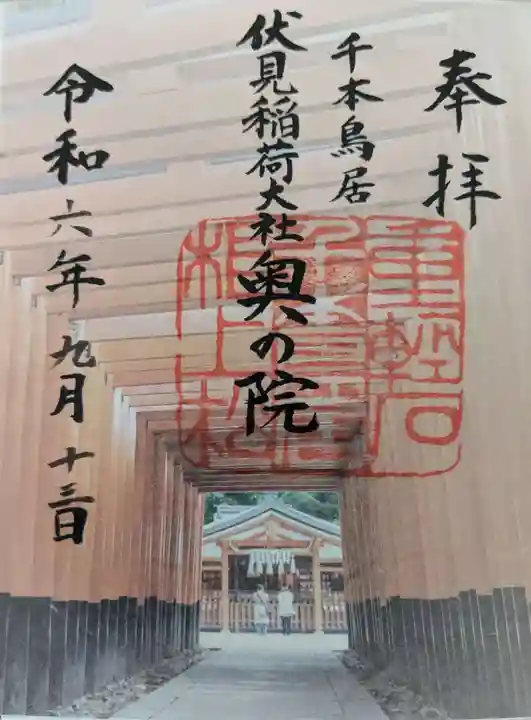 奉拝
千本鳥居
伏見稲荷大社奥の院
令和六年九月十三日